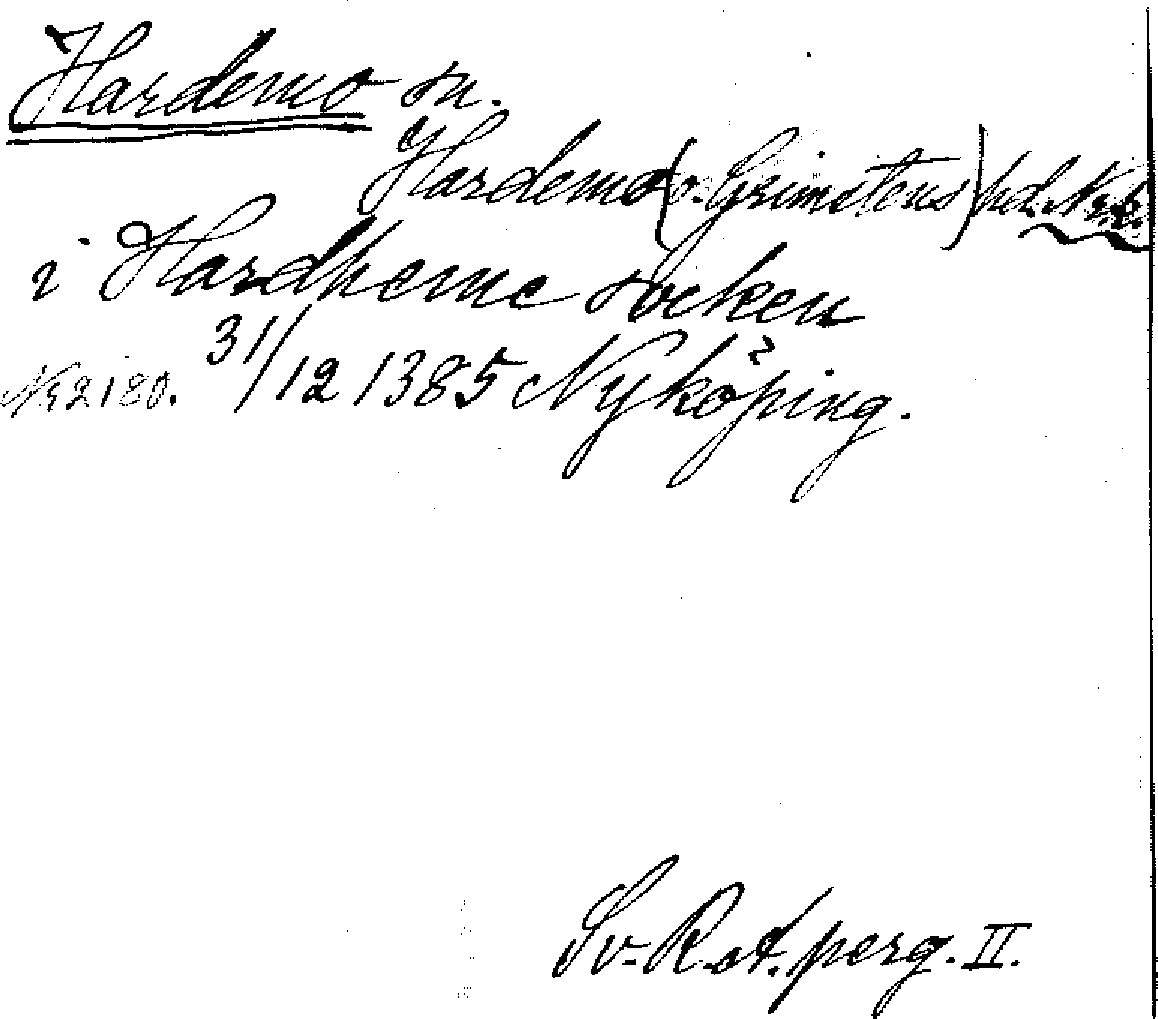 Hardemo sn.
Hardemo (o. Grimstens) hd. Nrk.
i Hardheme socken
Nr 2180. 31/12 1385 Nyköping.
Sv. R. at. perg. II.